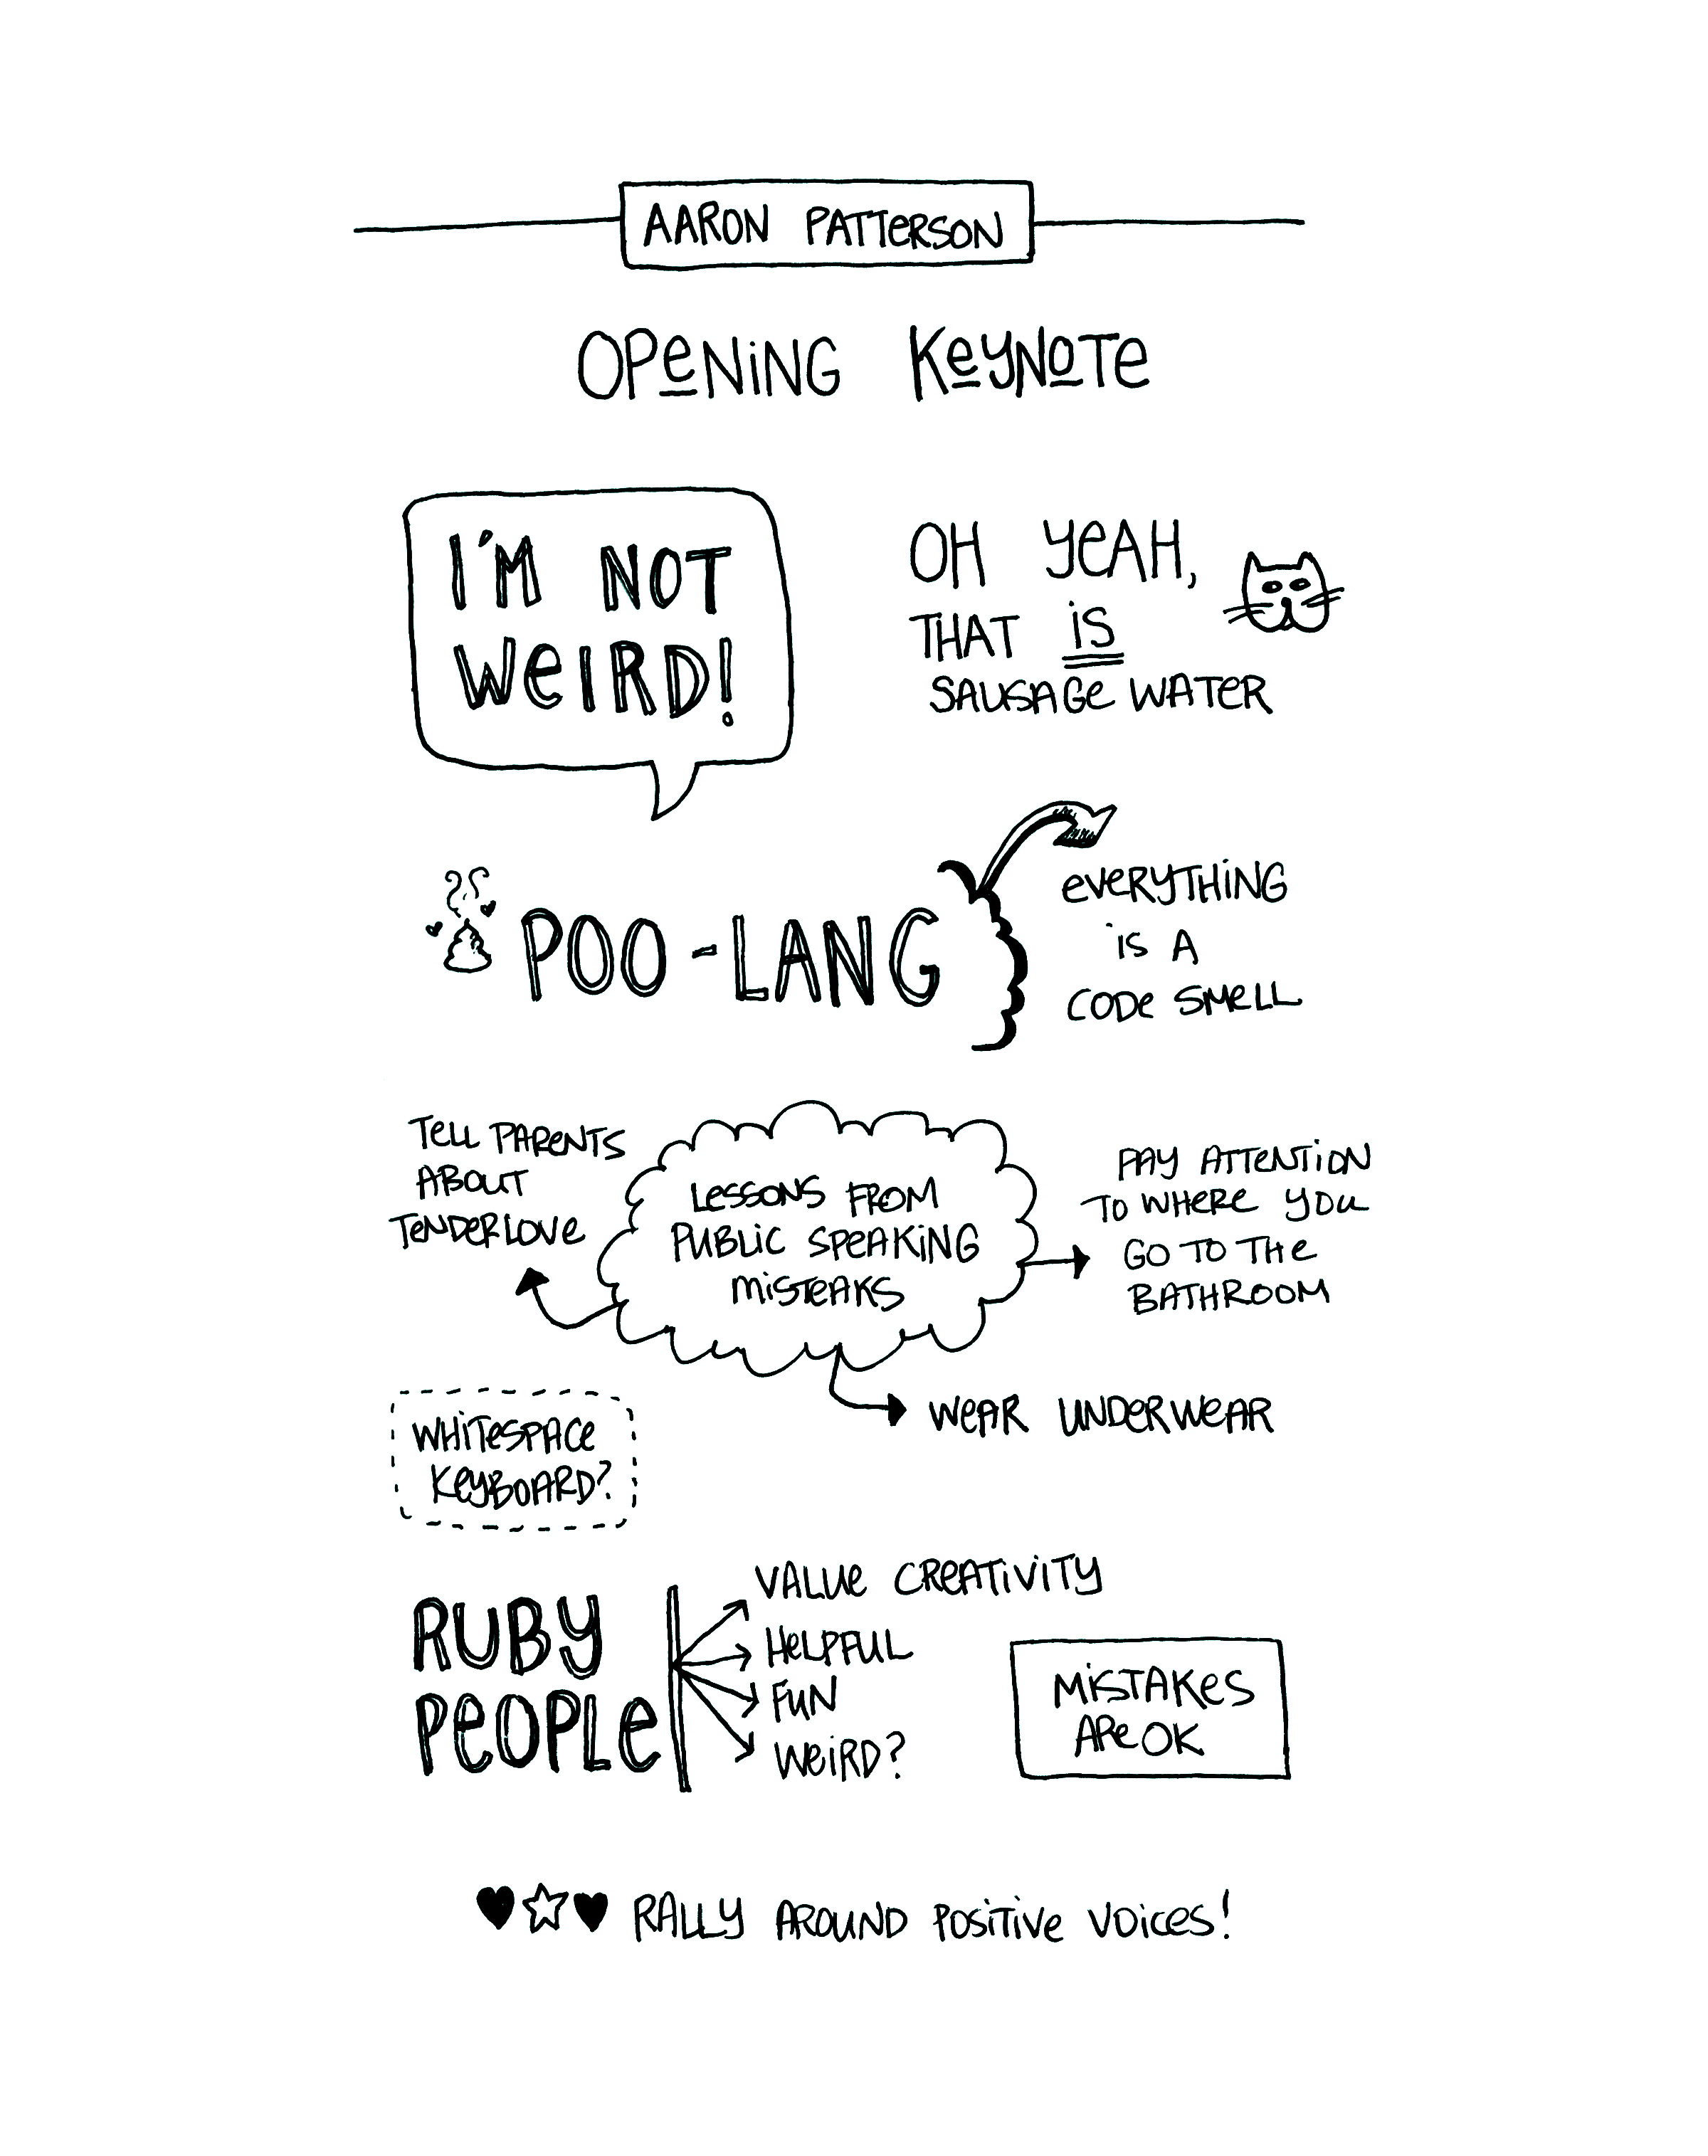 AARON PATTERSON
OPENING KEYNOTE
I'M NOT
WEIRD!
OH YEAH,
THAT IS
SAUSAGE WATER
POO-LANG
EVERYTHING
IS A
CODE SMELL
TELL PARENTS
ABOUT
TENDERLOVE
LESSONS FROM
PUBLIC SPEAKING
MISTEAKS
PAY ATTENTION
TO WHERE YOU
GO TO THE
BATHROOM
WEAR UNDERWEAR
WHITESPACE
KEYBOARD?
RUBY
PEOPLE
VALUE CREATIVITY
HELPFUL
FUN
WEIRD?
MISTAKES
ARE OK
RALLY AROUND POSITIVE VOICES!